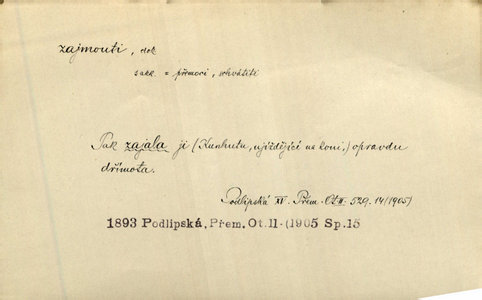 zajmouti, dok.
= přemoci, schvátiti
Pak zajala ji (Kunhutu, ujíždějící na koni,) opravdu
dřímota.
Podlipská XV. Přem. Ot. II. 520. 14 (1905)
1893 Podlipská, Přem. Ot. II - (1905 Sp. 15